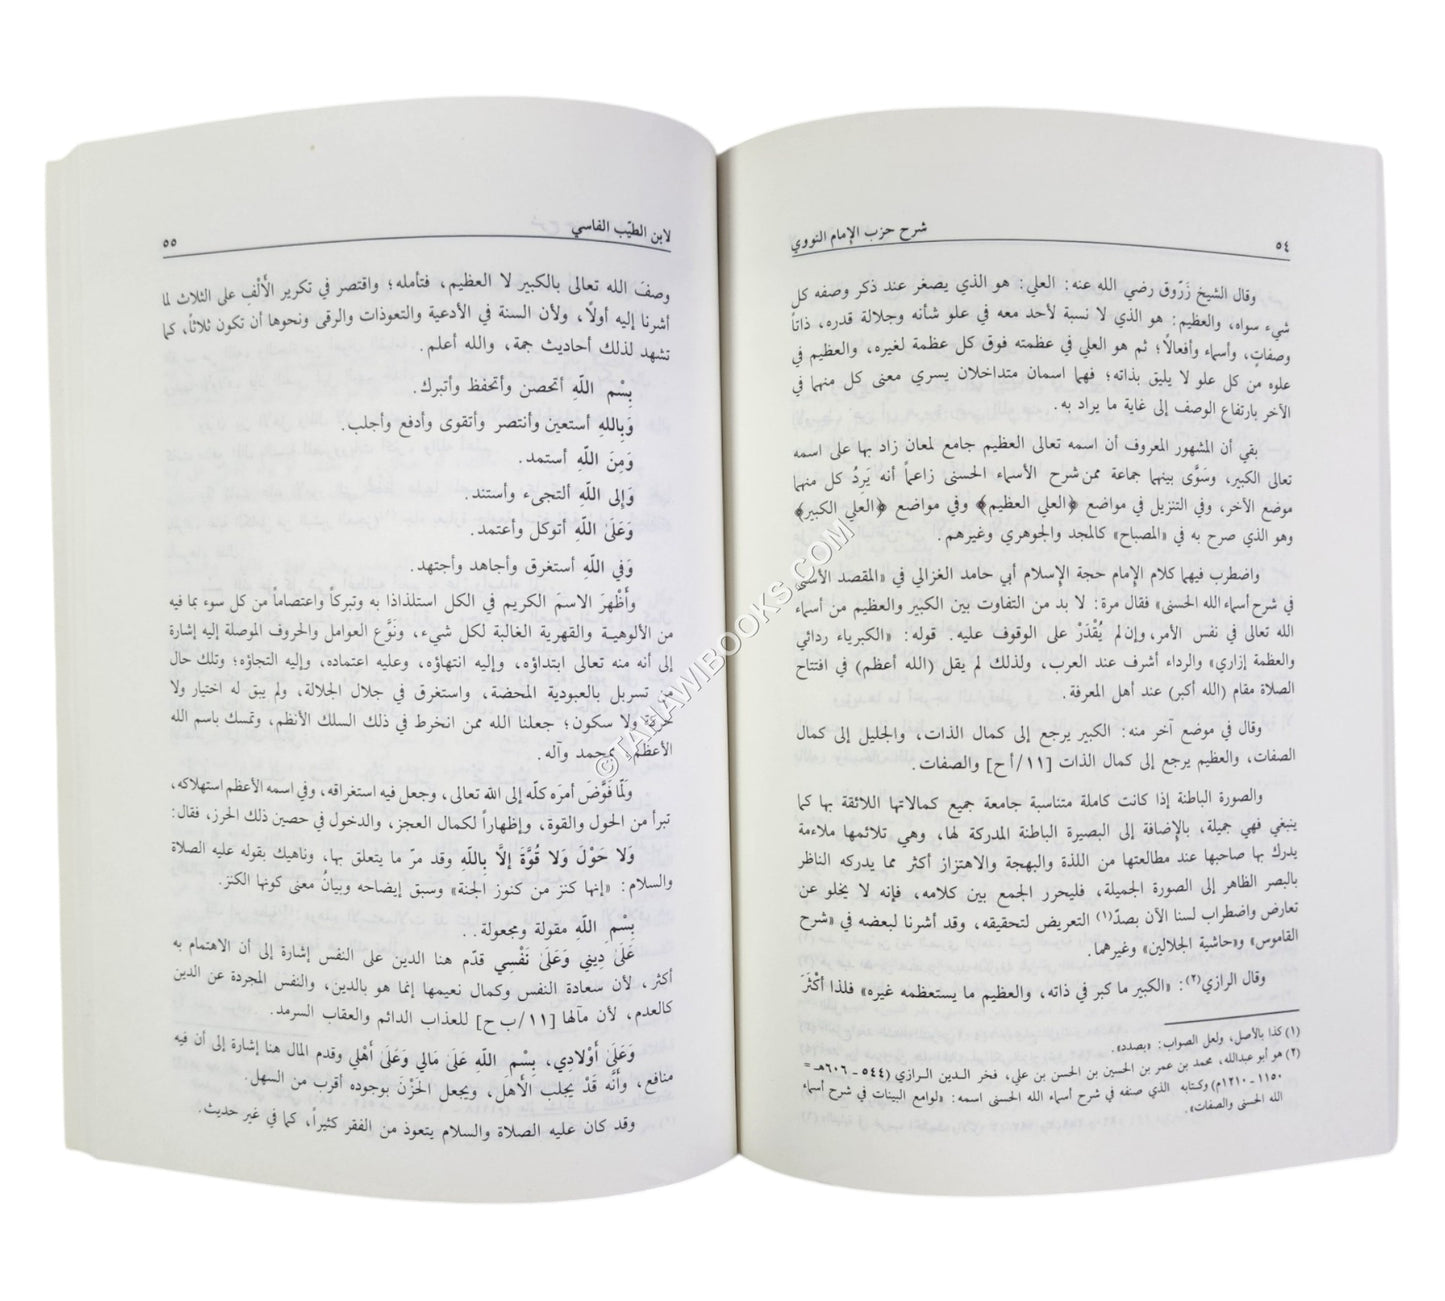 شرح حزب الإمام النووي
٥٤
وقال الشيخ زَرّوق رضي الله عنه: العلي: هو الذي يصغر عند ذكر وصفه كل
شيء سواه، والعظيم: هو الذي لا نسبة لأحد معه في علو شأنه وجلالة قدره، ذاتاً
وصفاتٍ، وأسماء وأفعالاً؛ ثم هو العلي في عظمته فوق كل عظمة لغيره، والعظيم في
علوه من كل علو لا يليق بذاته؛ فهما اسمان متداخلان يسري معنى كل منهما في
الآخر بارتفاع الوصف إلى غاية ما يراد به.
بقي أن المشهور المعروف أن اسمه تعالى العظيم جامع لمعان زاد بها على اسمه
تعالى الكبير، وسَوَّى بينهما جماعة ممن شرح الأسماء الحسنى زاعماً أنه يَرِدُ كل منهما
موضع الآخر، وفي التنزيل في مواضع ﴿العلي العظيم﴾ وفي مواضع ﴿العلي الكبير﴾
وهو الذي صرح به في «المصباح» كالمجد والجوهري وغيرهم.
واضطرب فيهما كلام الإمام حجة الإسلام أبي حامد الغزالي في «المقصد الأسنى
في شرح أسماء الله الحسنى» فقال مرة: لا بد من التفاوت بين الكبير والعظيم من أسماء
الله تعالى في نفس الأمر، وإن لم يُقْدَرْ على الوقوف عليه. قوله: «الكبرياء ردائي
والعظمة إزاري» والرداء أشرف عند العرب، ولذلك لم يقل (الله أعظم) في افتتاح
الصلاة مقام (الله أكبر) عند أهل المعرفة.
وقال في موضع آخر منه: الكبير يرجع إلى كمال الذات، والجليل إلى كمال
الصفات، والعظيم يرجع إلى كمال الذات [١١/أ ح] والصفات.
والصورة الباطنة إذا كانت كاملة متناسبة جامعة جميع كمالاتها اللائقة بها كما
ينبغي فهي جميلة، بالإضافة إلى البصيرة الباطنة المدركة لها، وهي تلائمها ملاءمة
يدرك بها صاحبها عند مطالعتها من اللذة والبهجة والاهتزاز أكثر مما يدركه الناظر
بالبصر الظاهر إلى الصورة الجميلة، فليحرر الجمع بين كلامه، فإنه لا يخلو عن
تعارض واضطراب لسنا الآن بصدّ(١) التعريض لتحقيقه، وقد أشرنا لبعضه في «شرح
القاموس» و«حاشية الجلالين» وغيرهما.
وقال الرازي(٢): «الكبير ما كبر في ذاته، والعظيم ما يستعظمه غيره» فلذا أكْثَرَ
(١) كذا بالأصل، ولعل الصواب: «بصدد».
(٢) هو أبو عبدالله، محمد بن عمر بن الحسين بن الحسن بن علي، فخر الدين الرازي (٥٤٤ - ٦٠٦هـ =
١١٥٠ - ١٢١٠م) وكتابه الذي صنفه في شرح أسماء الله الحسنى اسمه: «لوامع البينات في شرح أسماء
الله الحسنى والصفات».
لابن الطيّب الفاسي
٥٥
وصفَ الله تعالى بالكبير لا العظيم، فتأمله؛ واقتصر في تكرير الأَلْفِ على الثلاث لما
أشرنا إليه أولاً، ولأن السنة في الأدعية والتعوذات والرقى ونحوها أن تكون ثلاثاً، كما
تشهد لذلك أحاديث جمة، والله أعلم.
بِسْم اللّهِ أتحصن وأتحفظ وأتبرك.
وَبِاللهِ أستعين وأنتصر وأتقوى وأدفع وأجلب.
وَمِنَ اللّهِ أستمد.
وَإِلى اللّهِ ألتجىء وأستند.
وَعَلَىٰ اللّهِ أتوكل وأعتمد.
وَفي اللّهِ أستغرق وأجاهد وأجتهد.
وأَظْهرَ الاسمَ الكريم في الكل استلذاذا به وتبركاً واعتصاماً من كل سوء بما فيه
من الألوهية والقهرية الغالبة لكل شيء، ونَوَّع العوامل والحروف الموصلة إليه إشارة
إلى أنه منه تعالى ابتداؤه، وإليه انتهاؤه، وعليه اعتماده، وإليه التجاؤه؛ وتلك حال
من تسربل بالعبودية المحضة، واستغرق في جلال الجلالة، ولم يبق له اختيار ولا
حركة ولا سكون؛ جعلنا الله ممن انخرط في ذلك السلك الأنظم، وتمسك باسم الله
الأعظم بمحمد وآله.
ولَمّا فَوَّض أمرَه كلّه إلى الله تعالى، وجعل فيه استغراقه، وفي اسمه الأعظم استهلاكه،
تبرأ من الحول والقوة، وإظهاراً لكمال العجز، والدخول في حصين ذلك الحرز، فقال:
وَلا حَوْلَ وَلا قُوَّةَ إلاَّ بِاللّهِ وقد مرّ ما يتعلق بها، وناهيك بقوله عليه الصلاة
والسلام: «إنها كنز من كنوز الجنة» وسبق إيضاحه وبيانُ معنى كونها الكنز.
بِسْمِ اللّهِ مقولة ومجعولة.
عَلَىٰ دِيني وَعَلَىٰ نَفْسِي قدّم هنا الدين على النفس إشارة إلى أن الاهتمام به
أكثر، لأن سعادة النفس وكمال نعيمها إنما هو بالدين، والنفس المجردة عن الدين
كالعدم، لأن مآلها [١١/ب ح] للعذاب الدائم والعقاب السرمد.
وَعَلىٰ أَوْلادِي، بِسْمِ اللّهِ عَلَىٰ مَالي وَعَلىٰ أَهْلي وقدم المال هنا إشارة إلى أن فيه
منافع، وأنَّه قَدْ يجلب الأهل، ويجعل الحَزْنَ بوجوده أقرب من السهل.
وقد كان عليه الصلاة والسلام يتعوذ من الفقر كثيراً، كما في غير حديث.
©TAHAWIBOOKS.COM